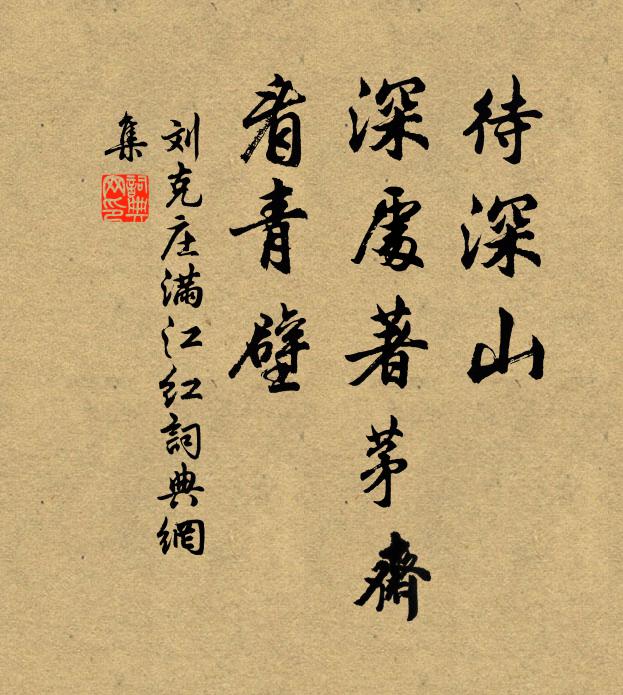 待深山
深處著茅齋
看青壁
刘克庄满江红詞典網
集
詞典
网印